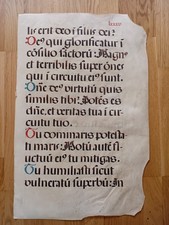 lxxxv
lis erit deo ĩ filiis dei?
De' qui glorificatur ĩ
cõsilio sctorũ: Magn'
et terribilis super õnes
qui ĩ circuitu ei' sunt.
Dñe de' virtutũ quis
similis tibi? Potẽs es
dñe, et veritas tua ĩ
circuitu tuo.
Tu dominaris potesta
ti maris: Motũ autẽ flu
ctuũ ei' tu mitigas.
Tu humiliasti sicut
vulneratũ superbũ: In